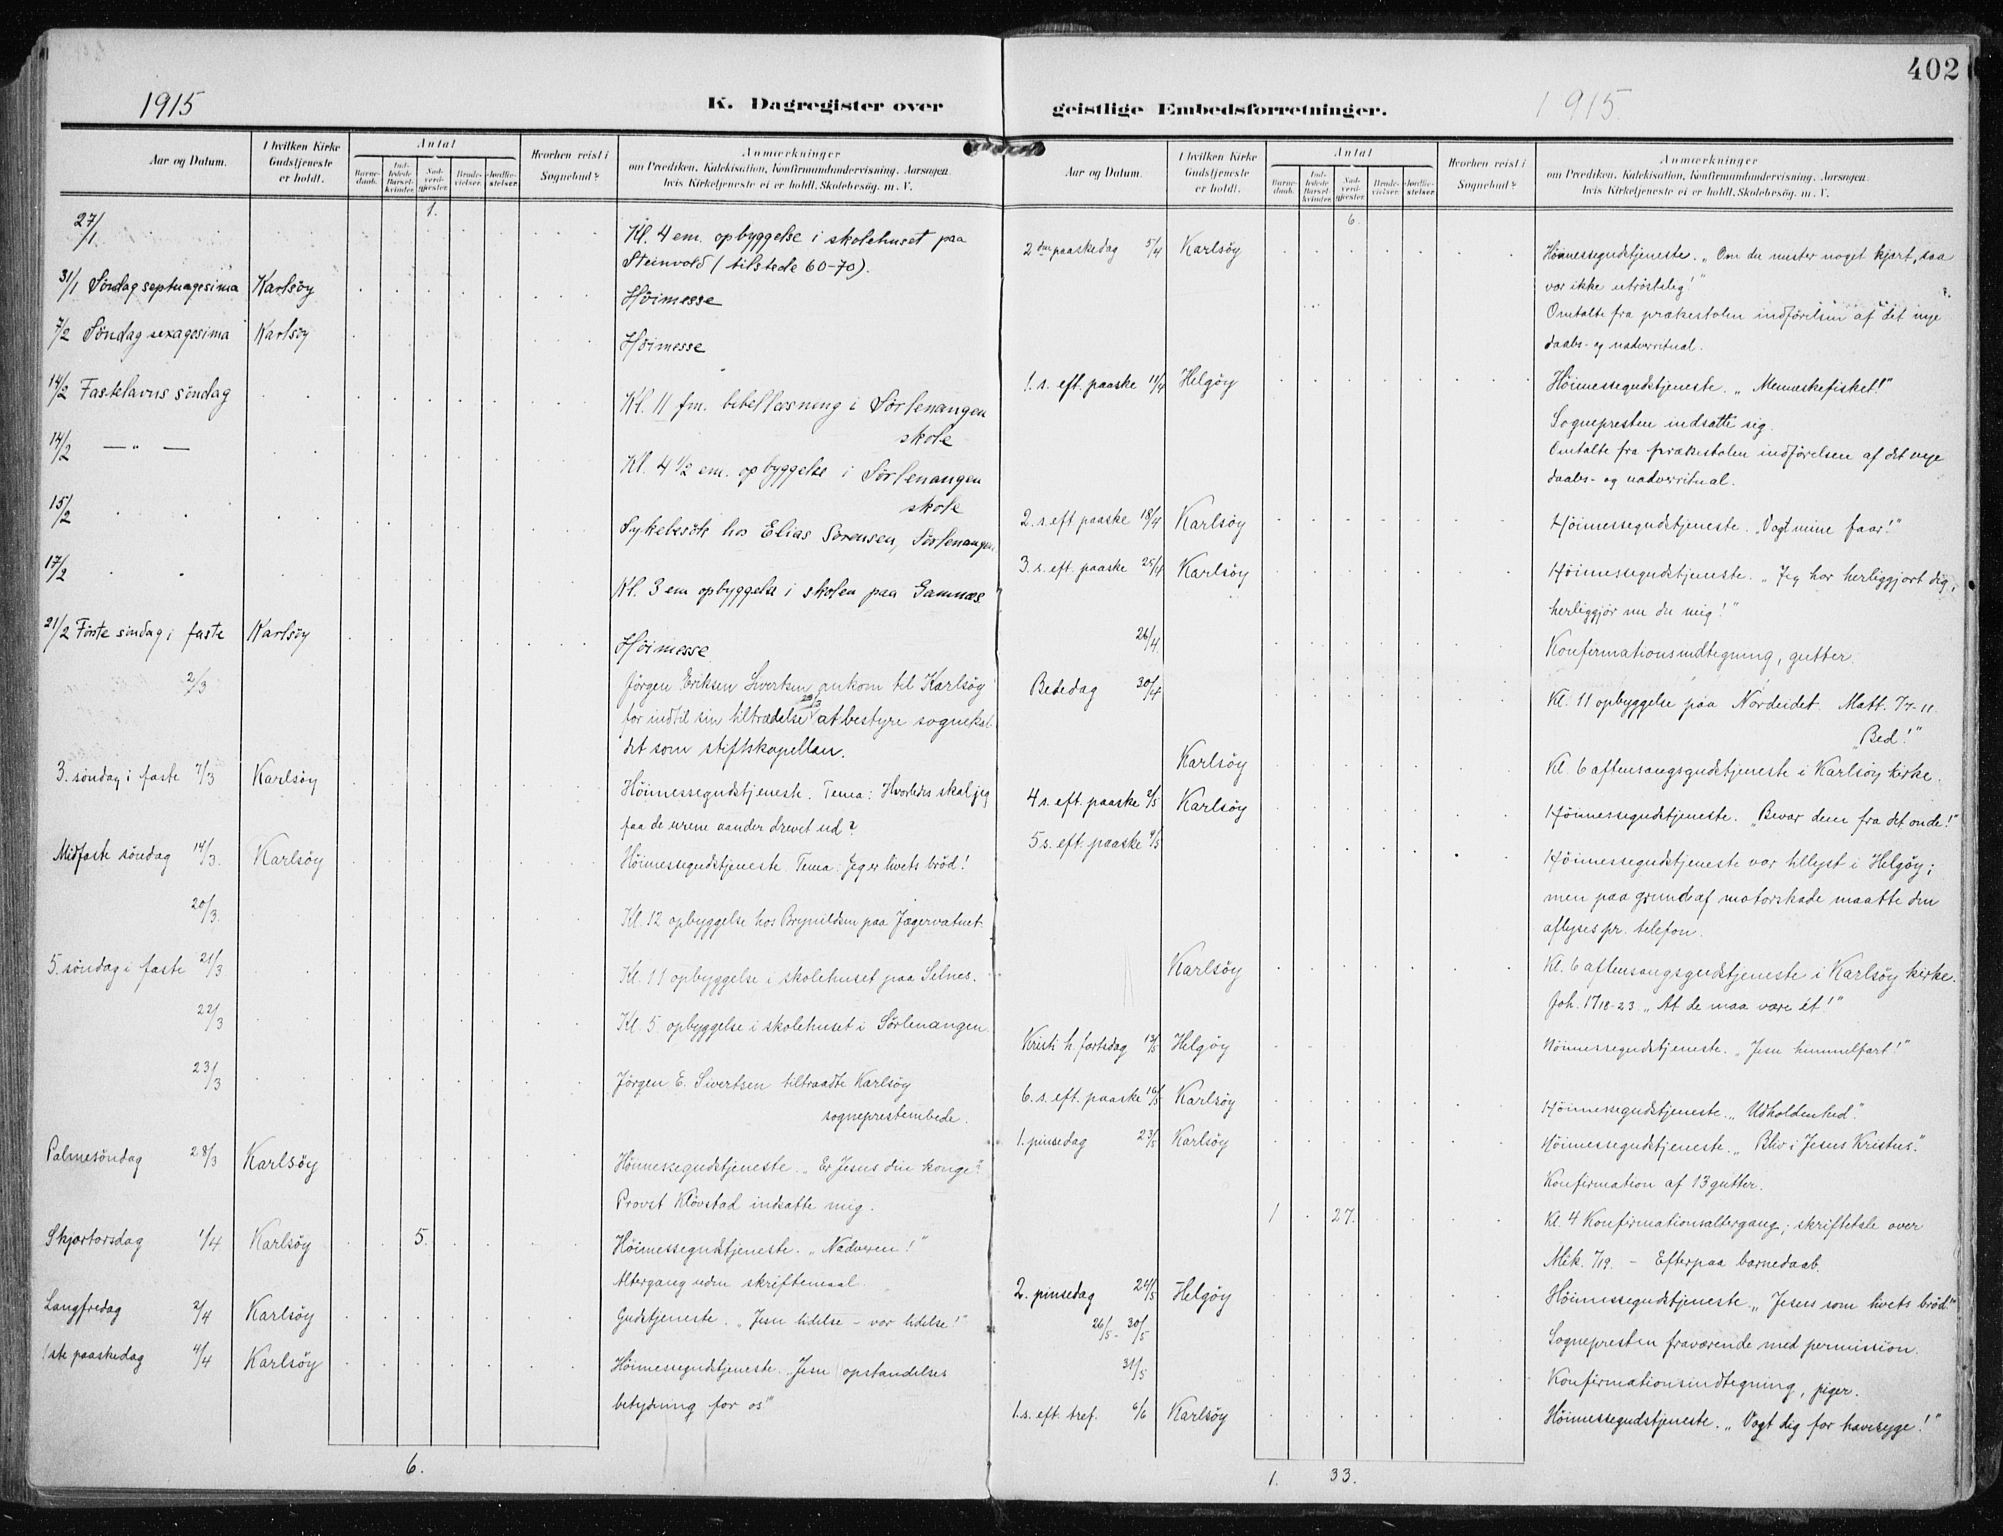 402
1915
K. Dagregister over
geistlige Embedsforretninger.
1915
Aar og Datum.
I hvilken Kirke Gudstjeneste er holdt.
Antal
Barnedaab.
Indledede Barselkvinder.
Nadverdgjester.
Brudevielser.
Jordfæstelser.
Hvorhen reist i Sognebud?
Anmerkninger
om Prædiken. Katekisation, Konfirmandundervisning. Aarsagen
hvis Kirketjeneste ei er holdt. Skolebesøg. m. V.
1.
27/1 Kl. 4 em. opbyggelse i skolehuset paa
Steinvold (tilstede 60-70).
31/1 Søndag septuagesima Karlsöy Höimesse
7/2 Søndag sexagesima Karlsöy Höimesse
14/2 Fastelavns söndag Kl. 11 fm. bibellæsning i Sörlenangen
skole
14/2 — „ — Kl. 4 1/2 em. opbyggelse i Sörlenangen
skole
15/2 Sykebesök hos Elias Sørensen, Sörlenangen
17/2 Kl. 3 em opbyggelse i skolen paa Gamnæs
21/2 Förste söndag i faste Karlsöy Höimesse
2/3 Jörgen Eriksen Sivertsen ankom til Karlsöy
for indtil sin tiltrædelse 23/3 at bestyre sognekal
det som stiftskapellan.
3. söndag i faste 7/3 Karlsöy Höimessegudstjeneste. Tema: Hvorledes skal jeg
faa de urene aander drevet ud?
Midfaste söndag 14/3. Karlsöy Höimessegudstjeneste Tema: Jeg er livets bröd!
20/3. Kl. 12 opbyggelse hos Brynildsen paa Jægervatnet
5. söndag i faste 21/3 Kl. 11 opbyggelse i skolehuset paa Selnes.
22/3 Kl. 5 opbyggelse i skolehuset i Sörlenangen
23/3 Jörgen E. Sivertsen tiltraadte Karlsöy
sogneprestembede.
Palmesöndag 28/3 Karlsöy Höimessegudstjeneste. „Er Jesus din konge?"
Provst Klövstad indsatte mig.
Skjærtorsdag 1/4 Karlsöy 5. Höimessegudstjeneste. „Nadveren!"
Altergang uden skriftemaal.
Langfredag 2/4 Karlsöy Gudstjeneste. „Jesu lidelse – vor lidelse!"
1ste paaskedag 4/4 Karlsöy Höimessegudstjeneste. „Jesu opstandelses
betydning for os"
6.
Aar og Datum.
I hvilken Kirke Gudstjeneste er holdt.
Antal
Barnedaab.
Indledede Barselkvinder.
Nadverdgjester.
Brudevielser.
Jordfæstelser.
Hvorhen reist i Sognebud?
Anmerkninger
om Prædiken. Katekisation, Konfirmandundervisning. Aarsagen
hvis Kirketjeneste ei er holdt. Skolebesøg. m. V.
6.
2den paaskedag 5/4 Karlsöy Höimessegudstjeneste. „Om du mister noget kjært, saa
vær ikke utröstelig!"
Omtalte fra prækestolen indförelsen af det nye
daabs- og nadverritual.
1. s. eft. paaske 11/4 Helgöy Höimessegudstjeneste. „Menneskefisket!"
Sognepresten indsatte sig.
Omtalte fra prækestolen indförelsen af det nye
daabs- og nadverritual.
2. s. eft paaske 18/4 Karlsöy Höimessegudstjeneste. „Vogt mine faar!"
3. s. eft. paaske 25/4 Karlsöy Höimessegudstjeneste. „Jeg har herliggjort dig,
herliggjör nu du mig!"
26/4. Konfirmationsindtegning, gutter.
Bededag 30/4 Kl. 11 opbyggelse paa Nordeidet. Matt. 7 7-11.
„Bed!"
Karlsöy Kl. 6 aftensangsgudstjeneste i Karlsöy kirke.
4 s. eft. paaske 2/5 Karlsöy Höimessegudstjeneste. „Bevar dem fra det onde!"
5 s. eft. paaske 9/5 Höimessegudstjeneste var tillyst i Helgöy;
men paa grund af motorskade maatte den
aflyses pr. telefon.
Karlsöy Kl. 6 aftensangsgudstjeneste i Karlsöy kirke.
Joh. 17 18-23. „At de maa være ét!"
Kristi h. fartsdag 13/5 Helgöy Höimessegudstjeneste. „Jesu himmelfart!"
6. s. eft. paaske 16/5 Karlsöy Höimessegudstjeneste. „Udholdenhed".
1. pinsedag 23/5 Karlsöy Höimessegudstjeneste. „Bliv i Jesus Kristus".
Konfirmation af 13 gutter.
1 27. Kl. 4 Konfirmationsaltergang; skriftetale over
Mik. 7 19. – Efterpaa barnedaab.
2. pinsedag 24/5 Helgöy Höimessegudstjeneste „Jesus som livets bröd!"
26/5 - 30/5 Sognepresten fraværende med permission.
31/5 Konfirmationsindtegning, piger.
1. s. eft. tref. 6/6 Karlsöy Höimessegudstjeneste. „Vogt dig for havesyge!"
1. 33.